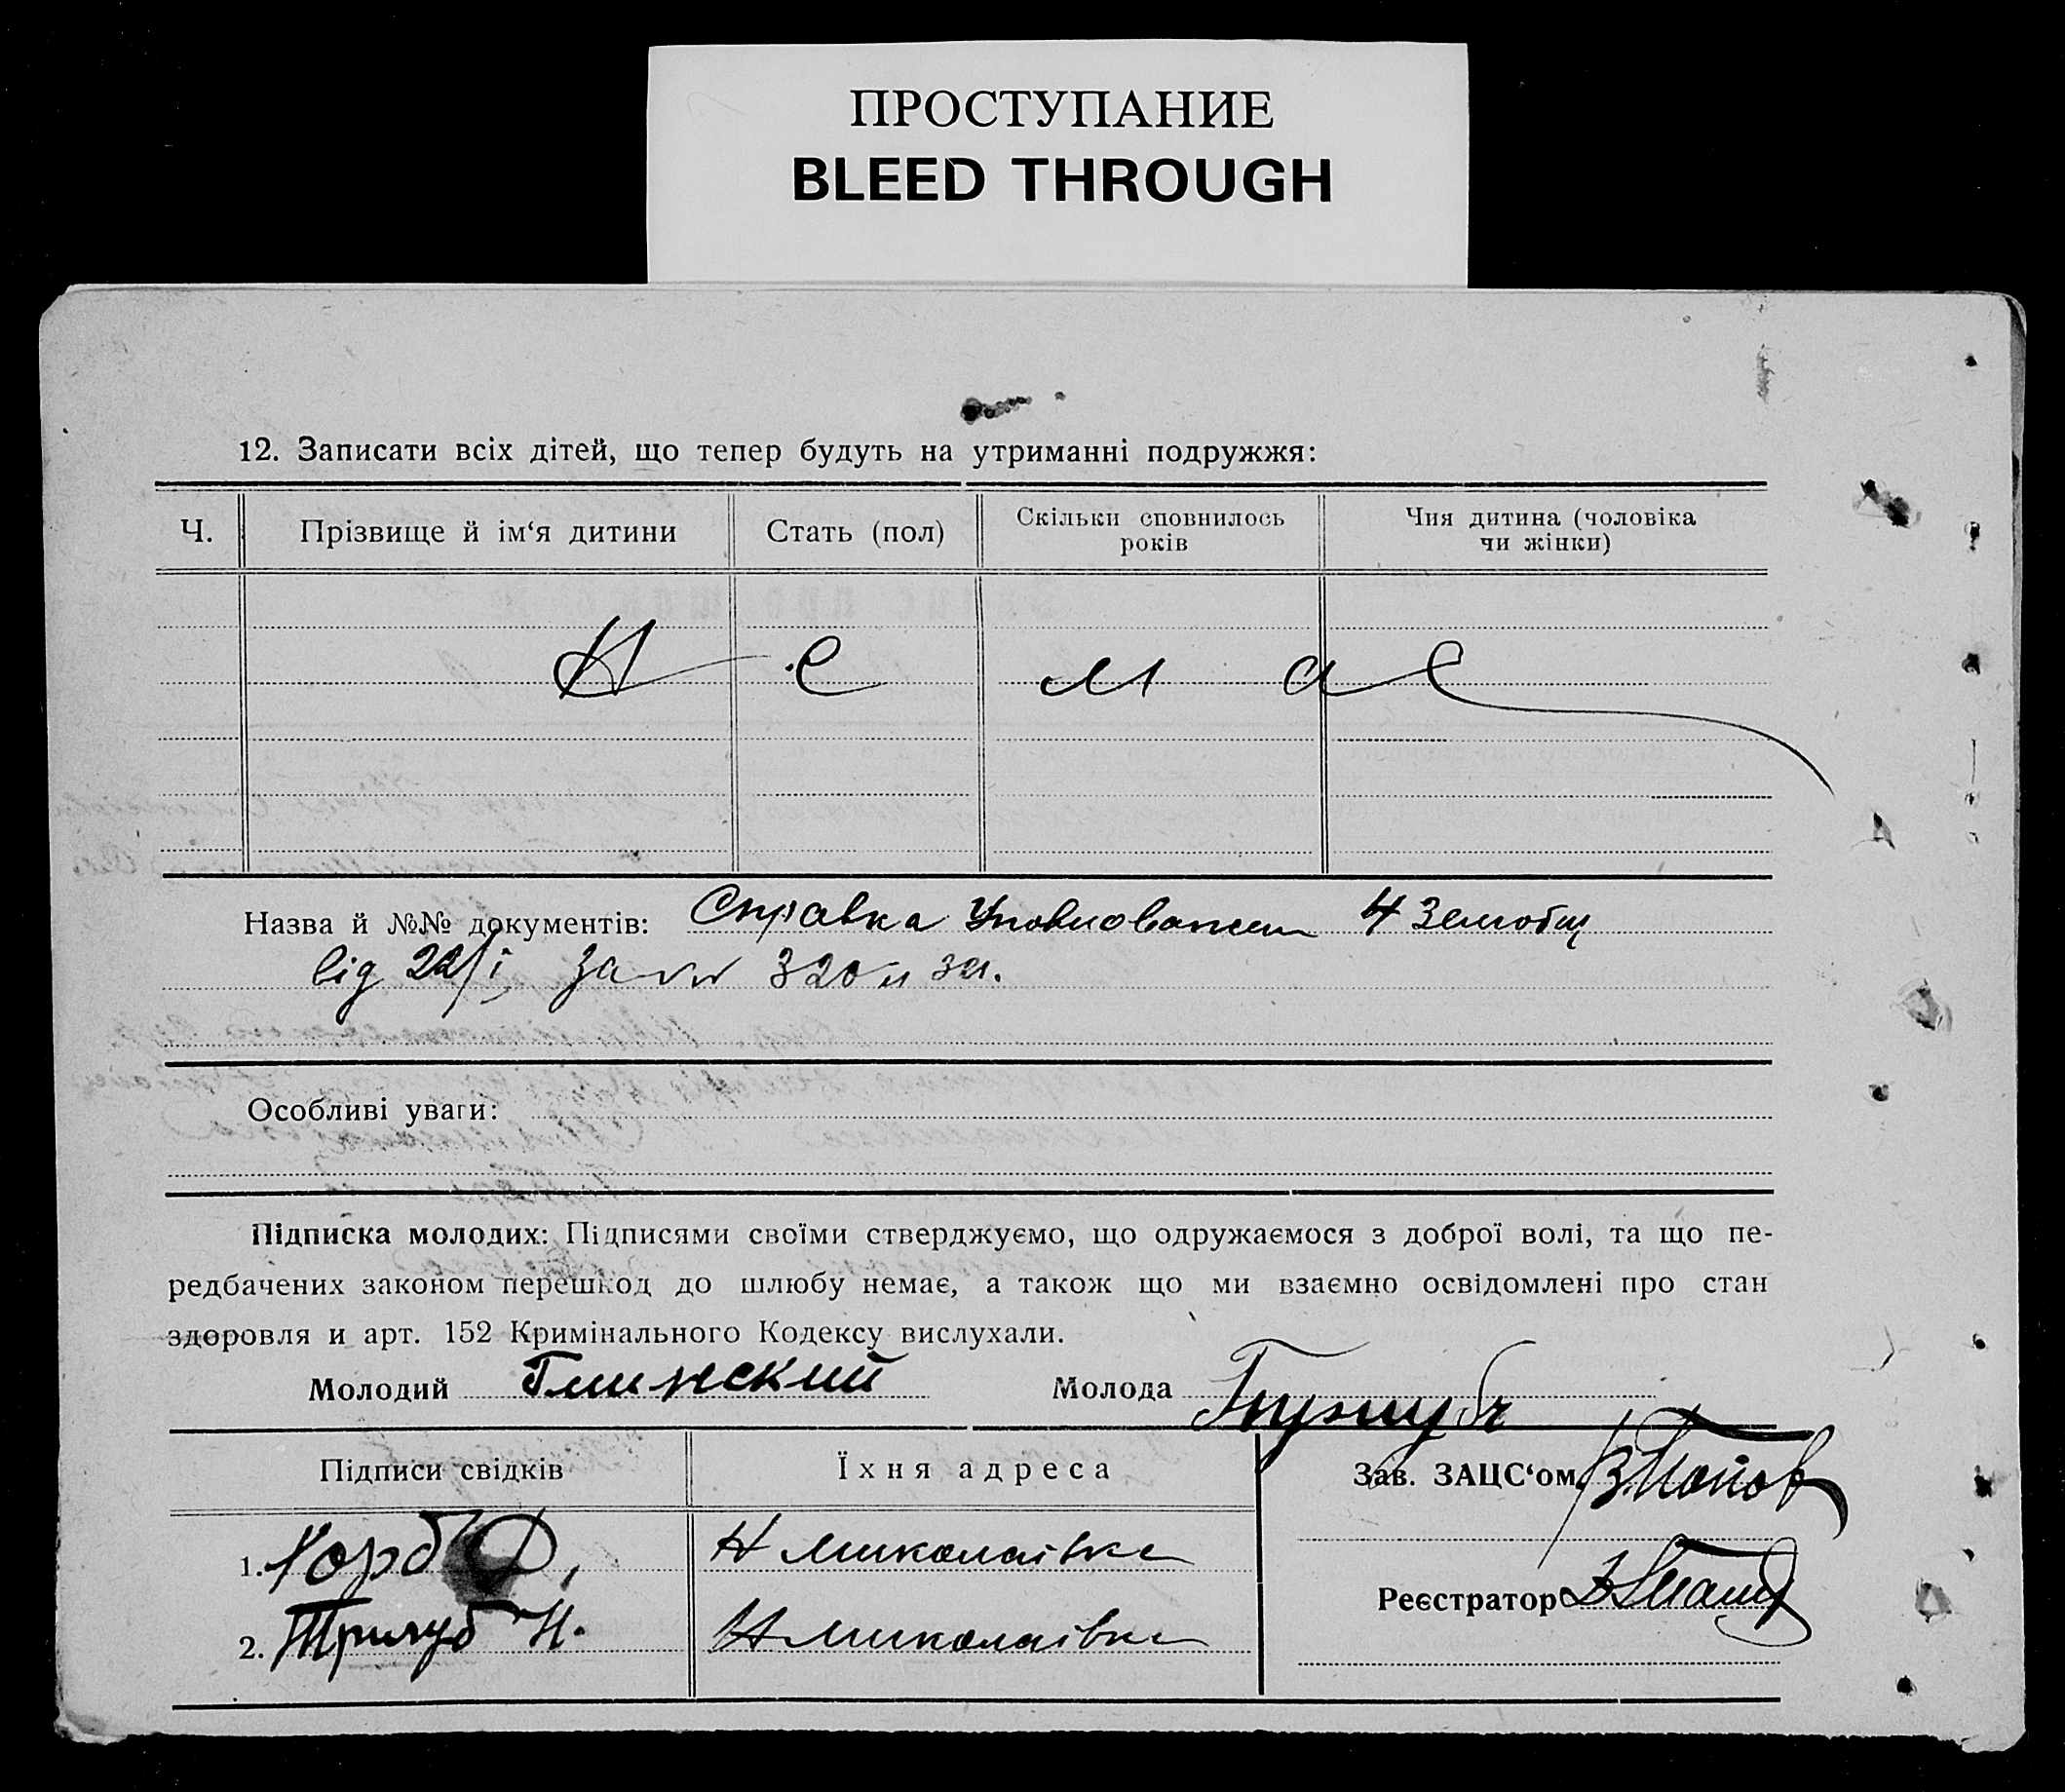 ПРОСТУПАНИЕ
BLEED THROUGH
12. Записати всіх дітей, що тепер будуть на утриманні подружжя:
Ч. Прізвище й ім‘я дитини Стать (пол) Скільки сповнилось років Чия дитина (чоловіка чи жінки)
Н е м а е
Назва й №№ документів: Справка 4
від 22/I за № 320
Особливі уваги:
Підписка молодих: Підписями своїми стверджуємо, що одружаємося з доброї волі, та що пе-
редбачених законом перешкод до шлюбу немає, а також що ми взаємно освідомлені про стан
здоровля и арт. 152 Кримінального Кодексу вислухали.
Молодий Глинский Молода
Підписи свідків Їхня адреса Зав. ЗАЦС‘ом
1. Н Миколаівка
Реєстратор
2. Н Миколаівка